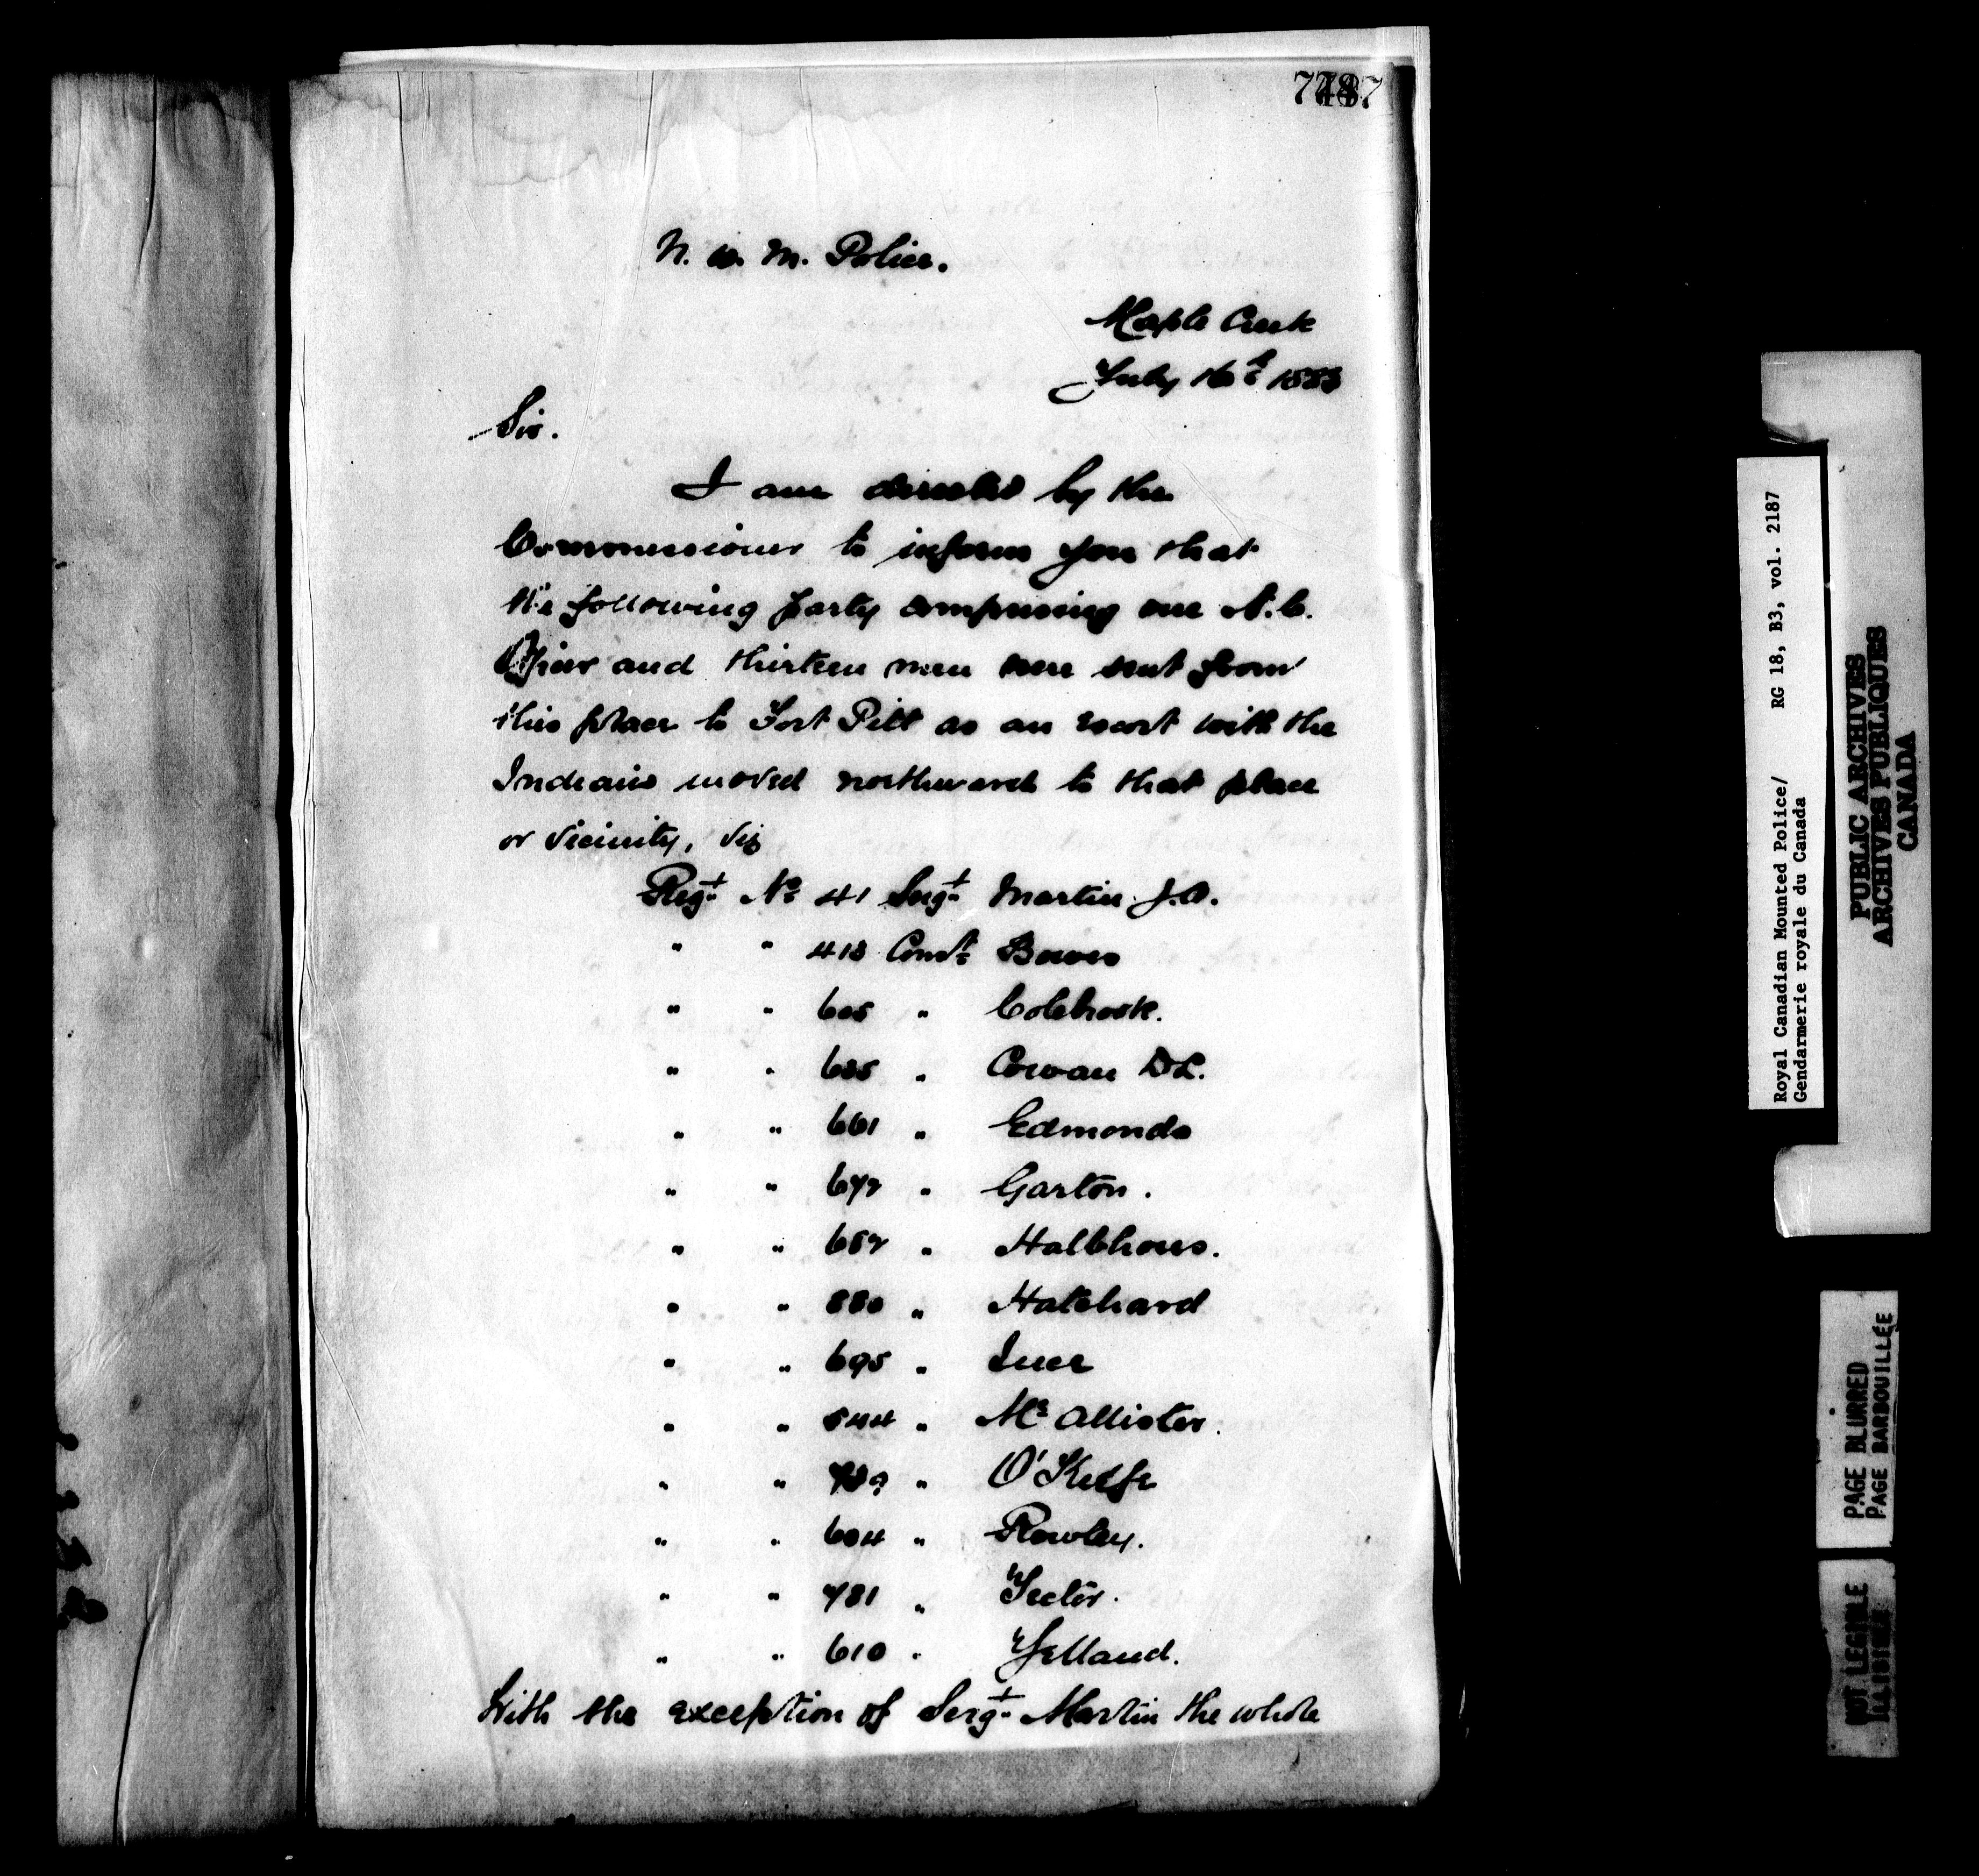 N. W. M. Police.
Maple Creek
July 16th 1883
Sir.
I am directed by the
Commissioner to inform you that
the following party comprising one N.C.
Officer and thirteen men were sent from
this place to Fort Pitt as an escort with the
Indians moved northward to that place
or vicinity, viz
Regt No 41 Sergt Martin J.A.
" " 413 Const Bowes
" " 605 " Colebrook.
" " 635 " Cowan D.L.
" " 661 " Edmonds
" " 672 " Garton.
" " 682 " Halbhous.
" " 880 " Hatchard
" " 695 "
" " 544 " Mc Allister.
" " " O'Keefe
" " 604 " Rowley.
" " 781 " Tector.
" " 610 " Yelland.
With the exception of Sergt Martin the whole
Royal Canadian Mounted Police/ RG 18, B3, vol. 2187
Gendarmerie royale du Canada
PUBLIC ARCHIVES
ARCHIVES PUBLIQUES
CANADA
PAGE BLURRED
PAGE BARBOUILLÉE
NOT LEGIBLE
ILLISIBLE